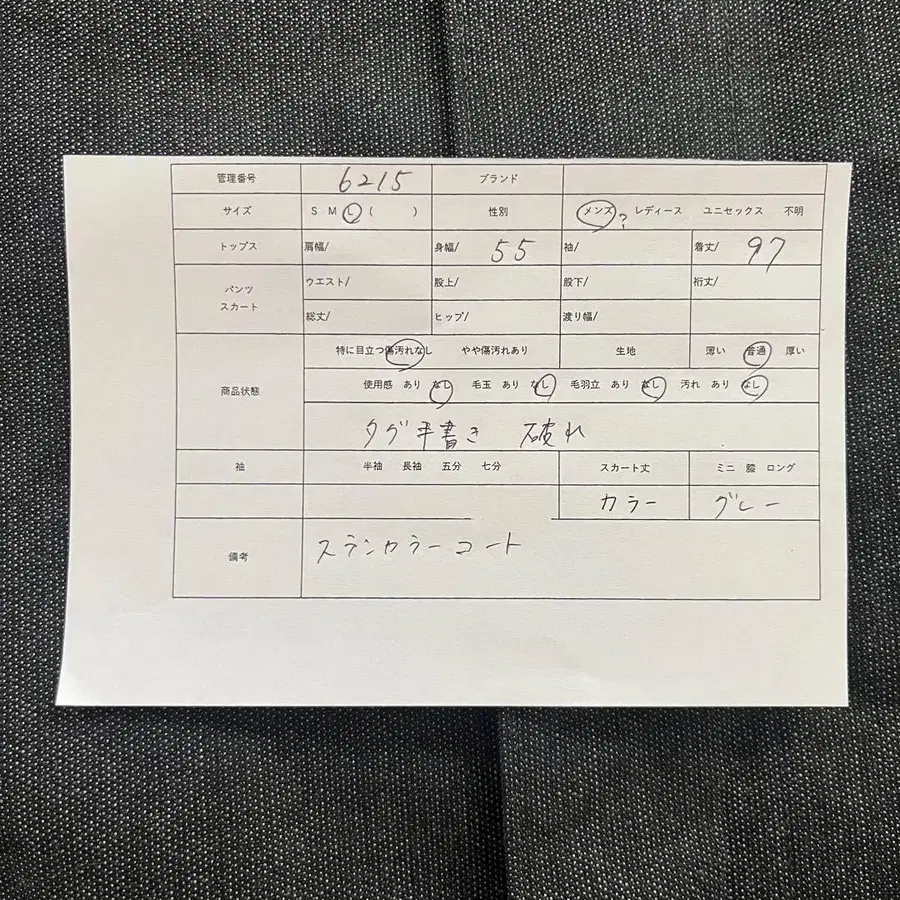 管理番号 6215 ブランド
サイズ S M L ( ) 性別 メンズ ? レディース ユニセックス 不明
トップス 肩幅/ 身幅/ 55 袖/ 着丈/ 97
パンツ スカート ウエスト/ 股上/ 股下/ 裄丈/
総丈/ ヒップ/ 渡り幅/
特に目立つ傷汚れなし やや傷汚れあり 生地 薄い 普通 厚い
商品状態 使用感 あり なし 毛玉 あり なし 毛羽立 あり なし 汚れ あり なし
タグ手書き 破れ
袖 半袖 長袖 五分 七分 スカート丈 ミニ 膝 ロング
カラー グレー
備考 スランカラーコート